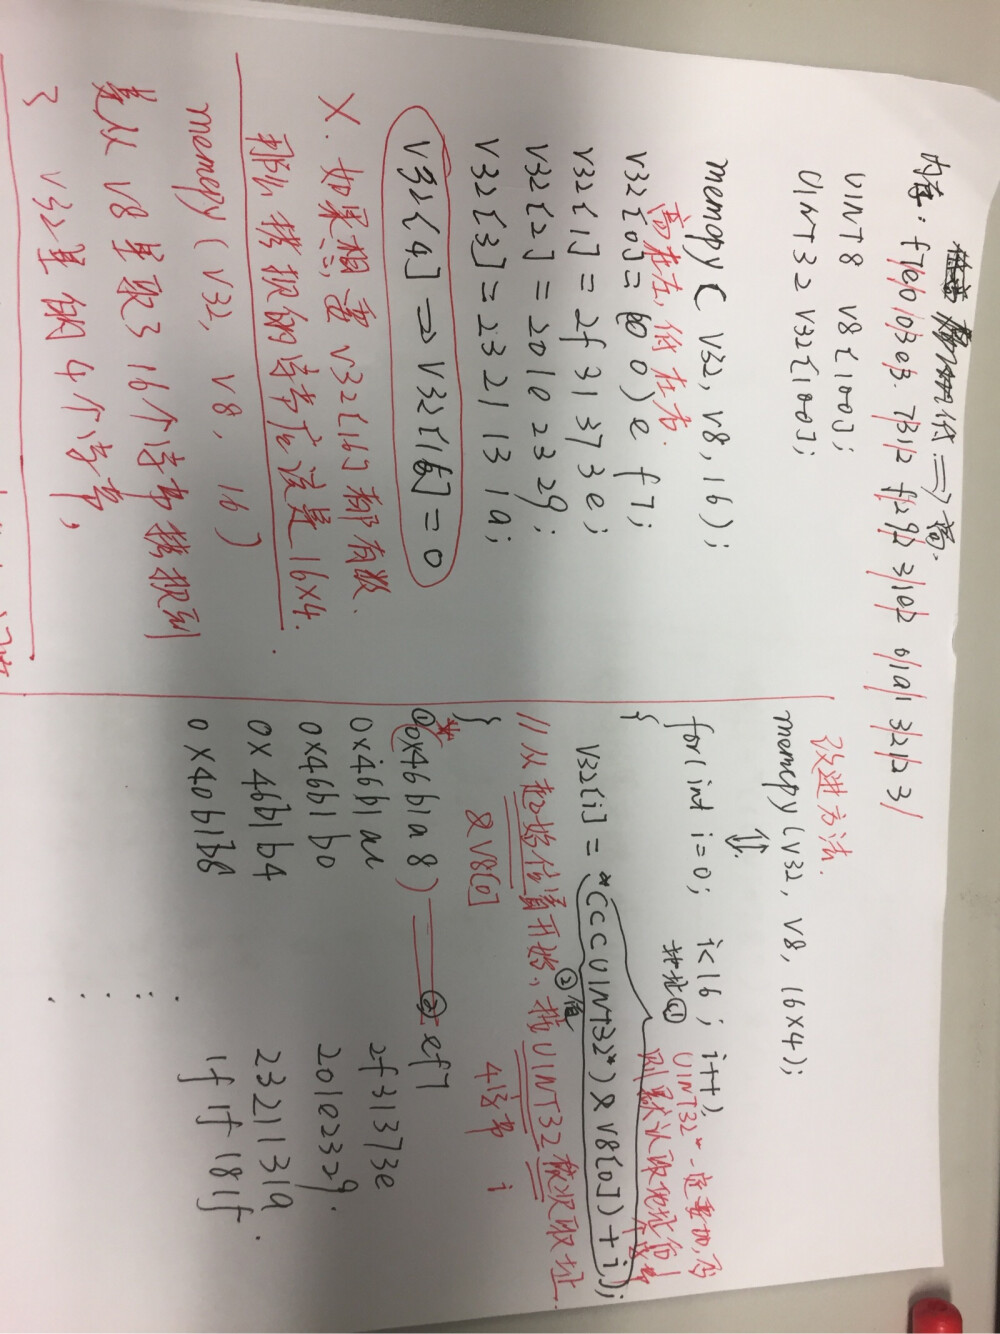 内存: f7e0/03e3. 73/2 f/29/2 3/10/2 0/1a/1 3/2/23/
低 => 高.
UINT8 V8[100];
UINT32 V32[100];
memcpy( V32, V8, 16);
高在左, 低在右.
V32[0]= 00) e f7;
V32[1] = 2f 31 37 3e;
V32[2] = 201e 2329;
V32[3] = 2321 13 1a;
V32[4] → V32[15] = 0
X. 如果想要 V32[16]都有数.
那么拷贝的字节应该是16×4.
memcpy( V32, V8, 16)
是从 V8里取了16个字节拷贝到
了 V32里的4个字节,
改进方法.
memcpy(V32, V8, 16×4);
⇕
for(int i=0; i<16; i++)
地址①
UINT32* 一定要加, 否
则默认取地址的1
个字节
{
V32[i] = *(((UINT32*)&V8[0])+i);
②值
//从起始位置开始, 按UINT32依次取址.
&V8[0] 4字节 i
}
①0x46b1a8) ② ef7
0x46b1ac 2f31373e
0x46b1b0 201e2329.
0x46b1b4 2321131a
0x46b1b8 1f1f181f.